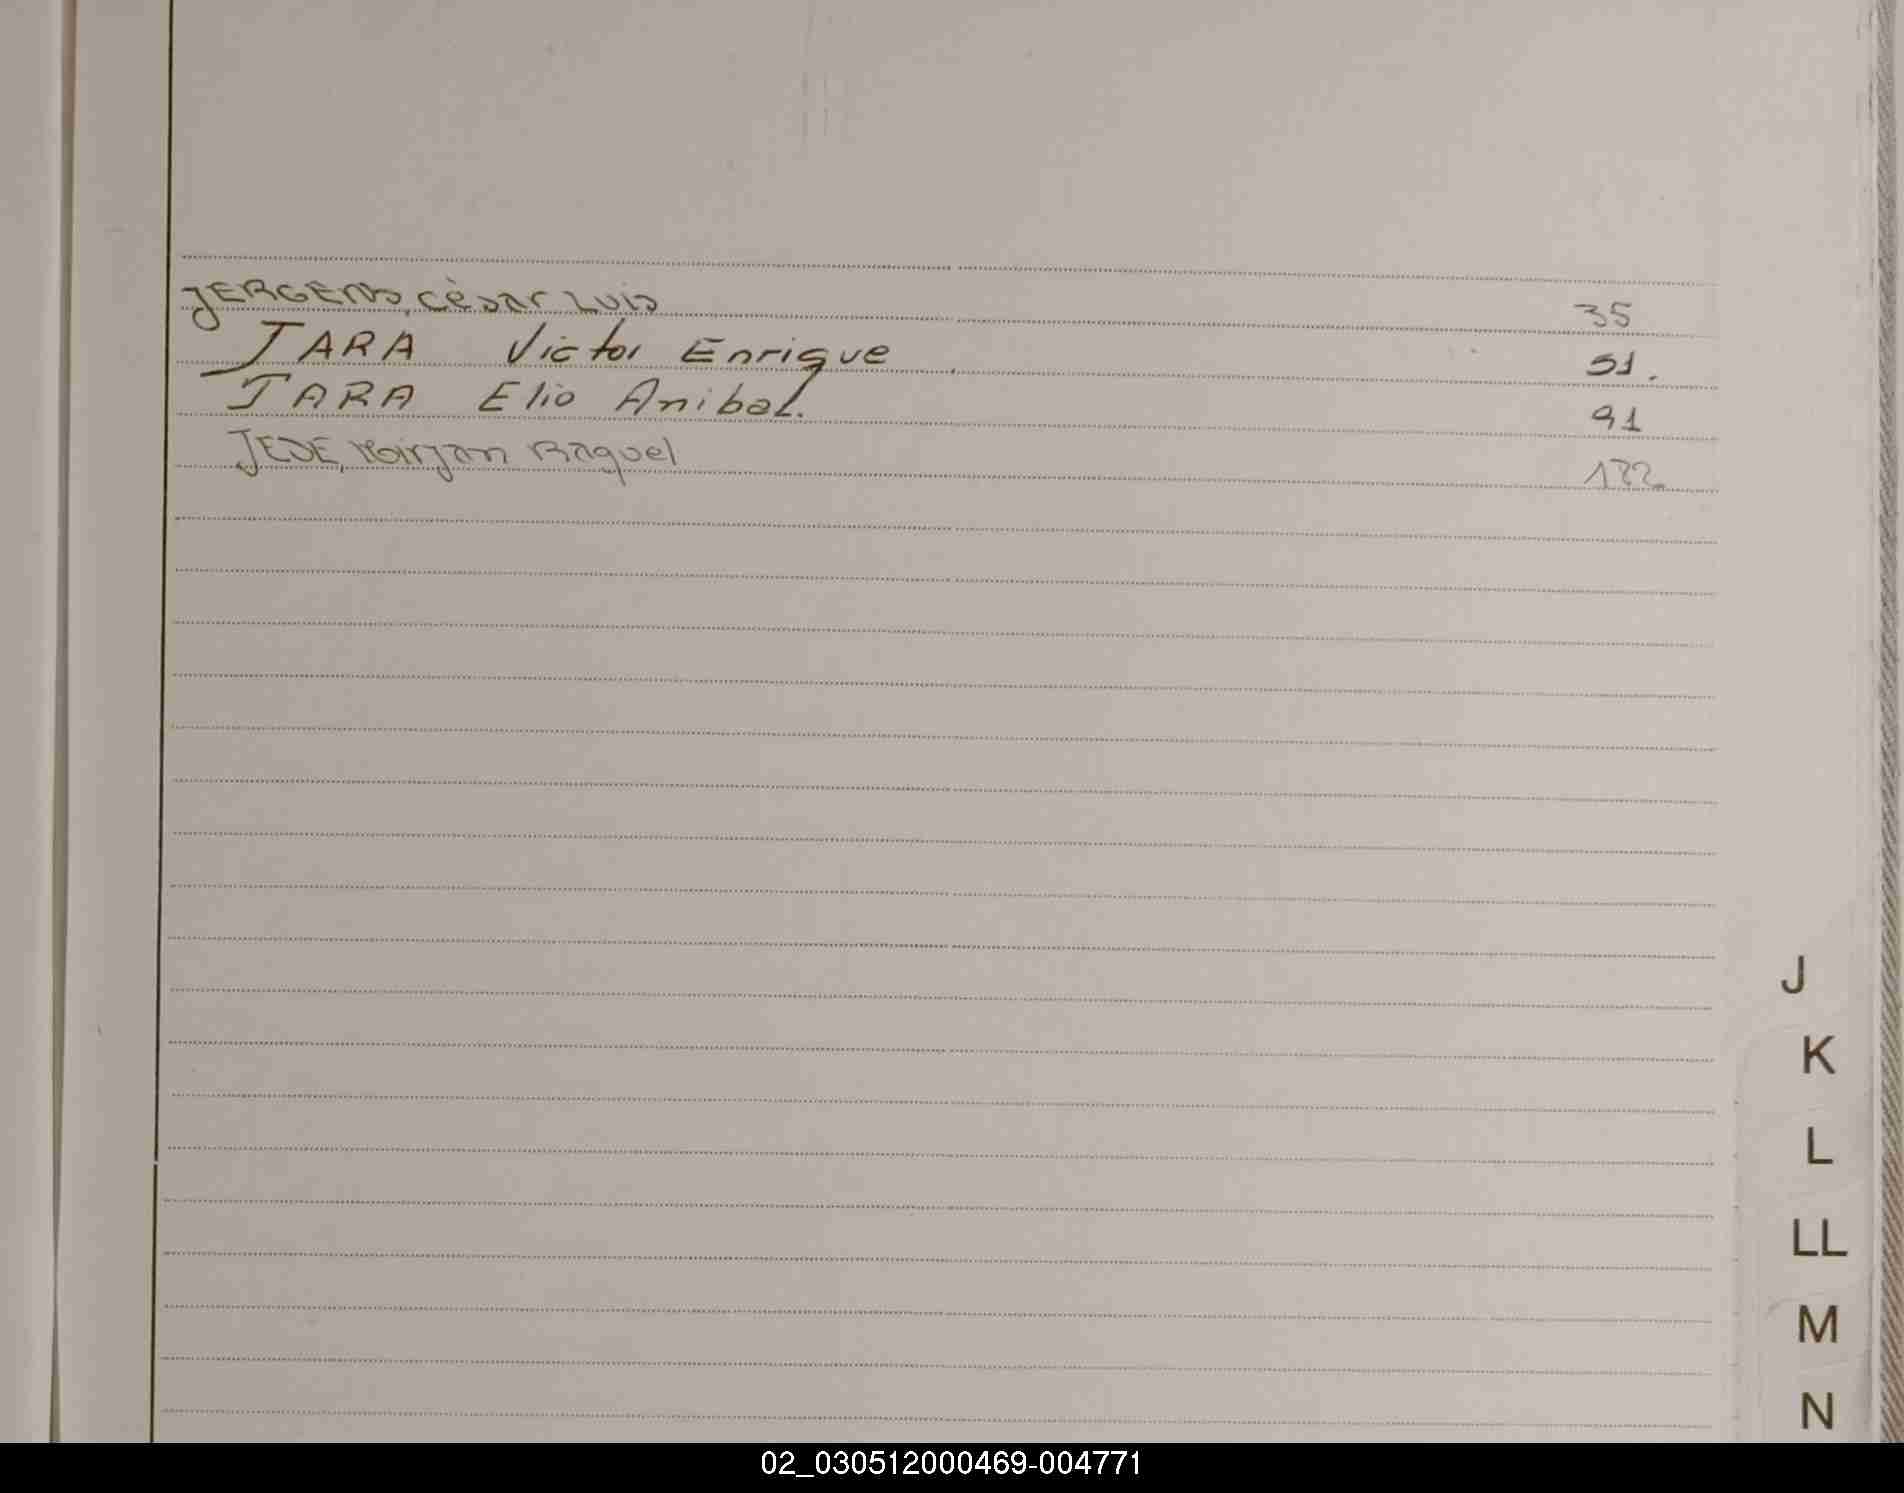 JERGENS, César Luis 35
JARA Victor Enrique 51.
JARA Elio Anibal. 91
JEDE, Mirjan Raquel 122
J
K
L
LL
M
N
02_030512000469-004771